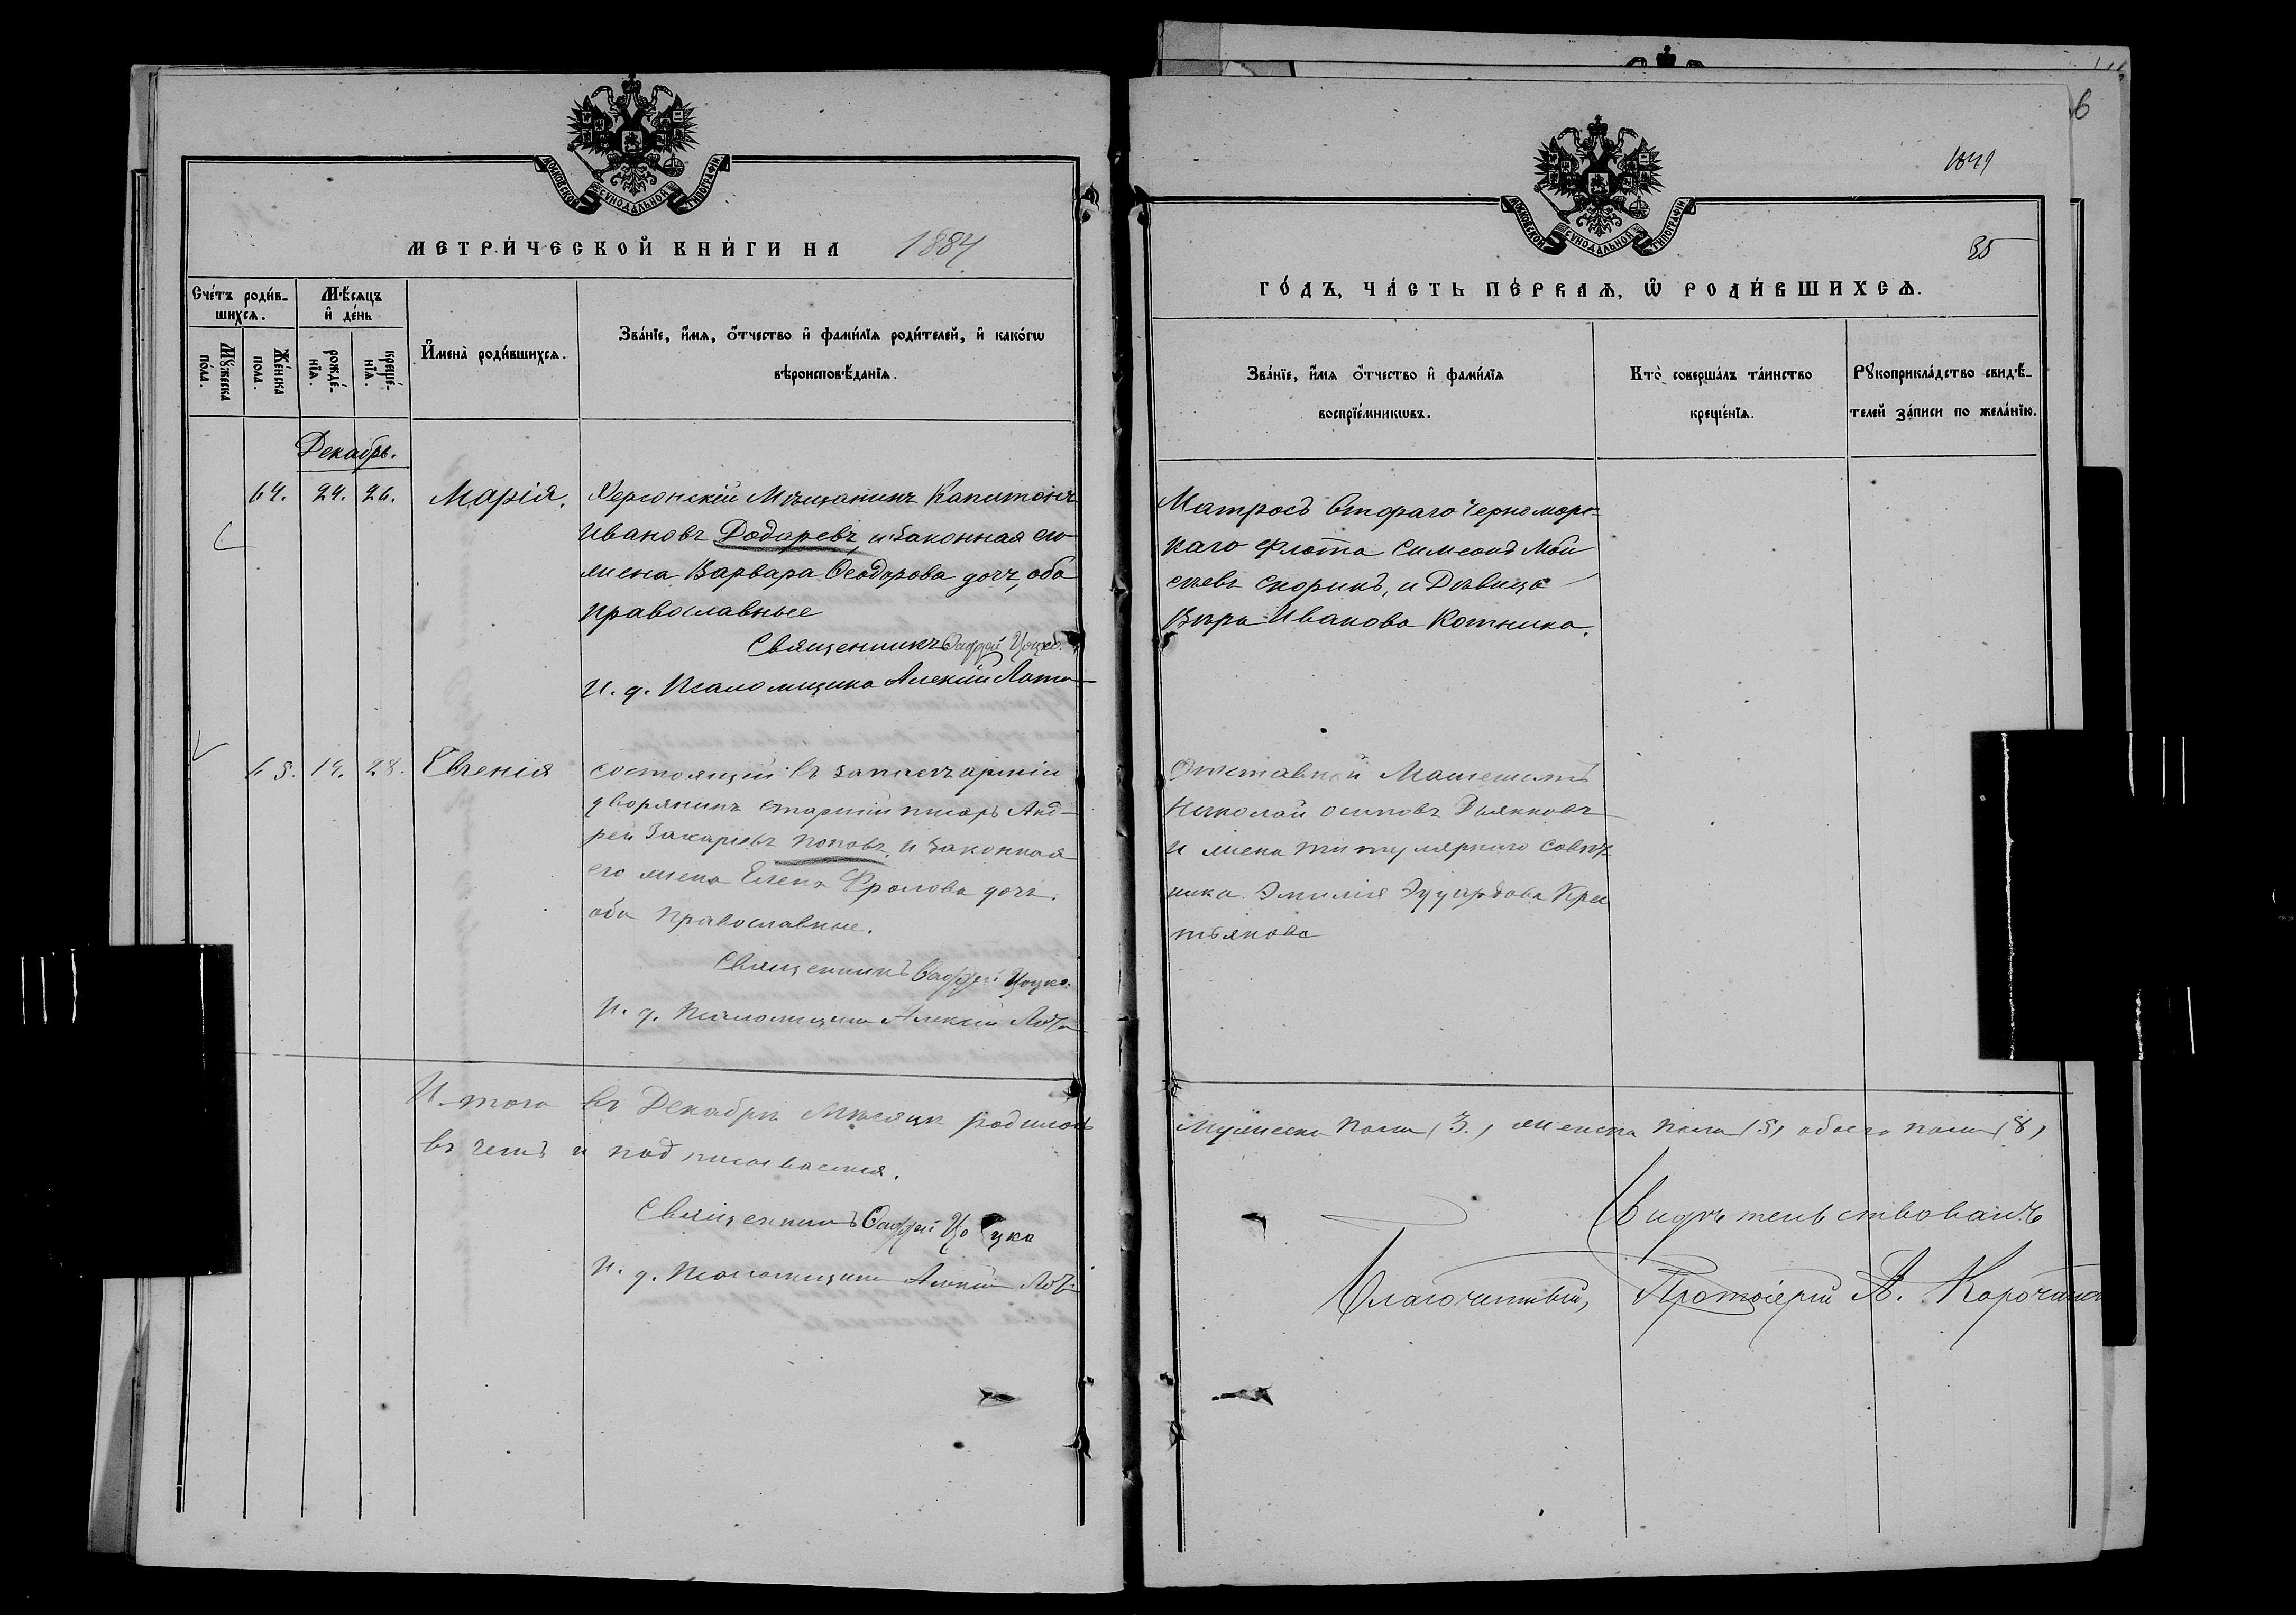 МОСКОВСКОЙ СУНОДАЛЬНОЙ ТИПОГРАФІИ
МЕТРИ́ЧЕСКОЙ КНИ́ГИ НА 1884
Сче́тъ роди́в-
шихсѧ.
Мѣ́сѧцъ
и҆ де́нь
Мꙋ́жеска
по́ла.
Же́нска
пола.
рожде́-
нїѧ.
креще́-
нїѧ.
И҆мена̀ роди́вшихсѧ.
Зва́нїе, и҆́мѧ, ѻ҆́тчество и҆ фами́лїѧ роди́телей, и҆ како́гѡ
вѣроисповѣ́данїѧ.
Декабрь.
64. 24. 26. Марія.
Херсонскій Мѣщанинъ Капитонъ
Ивановъ Додаревъ, и законная его
жена Варвара Ѳеодорова дочъ, оба
православные
Священникъ Ѳаддей Цоцко.
И. д. Псаломщика Алексій Лота
65. 19. 28. Евгенія
состоящій въ запасѣ арміи
дворянинъ старшій писарь Анд-
рей Захаріевъ Поповъ, и законная
его жена Елена Фролова дочь.
оба православные.
Священникъ Ѳаддей Цоцко.
И. д. Псаломщика Алексій
И-того въ Декабрѣ Мѣсяцѣ родилось
въ чемъ и подписываемся.
Священникъ Ѳаддей Цоцко
И. д. Псаломщика Алексій
6
1849
35
МОСКОВСКОЙ СУНОДАЛЬНОЙ ТИПОГРАФІИ
ГО́ДЪ, ЧА́СТЬ ПЕ́РВАѦ, Ѡ҆ РОДИ́ВШИХСѦ.
Зва́нїе, и҆́мѧ ѻ҆́тчество и҆ фами́лїѧ
воспрїе́мникѡвъ.
Кто̀ соверша́лъ та́инство
креще́нїѧ.
Рꙋкоприкла́дство свидѣ́-
телей за́писи по жела́нїю.
Матросъ втораго Черноморс-
каго флота Симеонъ Мои
сеевъ Скорикъ, и Дѣвица
Вѣра Иванова Коткика.
Отставной Машинистъ
Николай Осиповъ
и жена титулярнаго совѣт-
ника Эмилія Эдуардова Крес
тьянова
Мужеска пола (3.) женска пола (5) обоего пола (8)
Свидѣтельствовалъ
Благочинный, Протоіерей А.